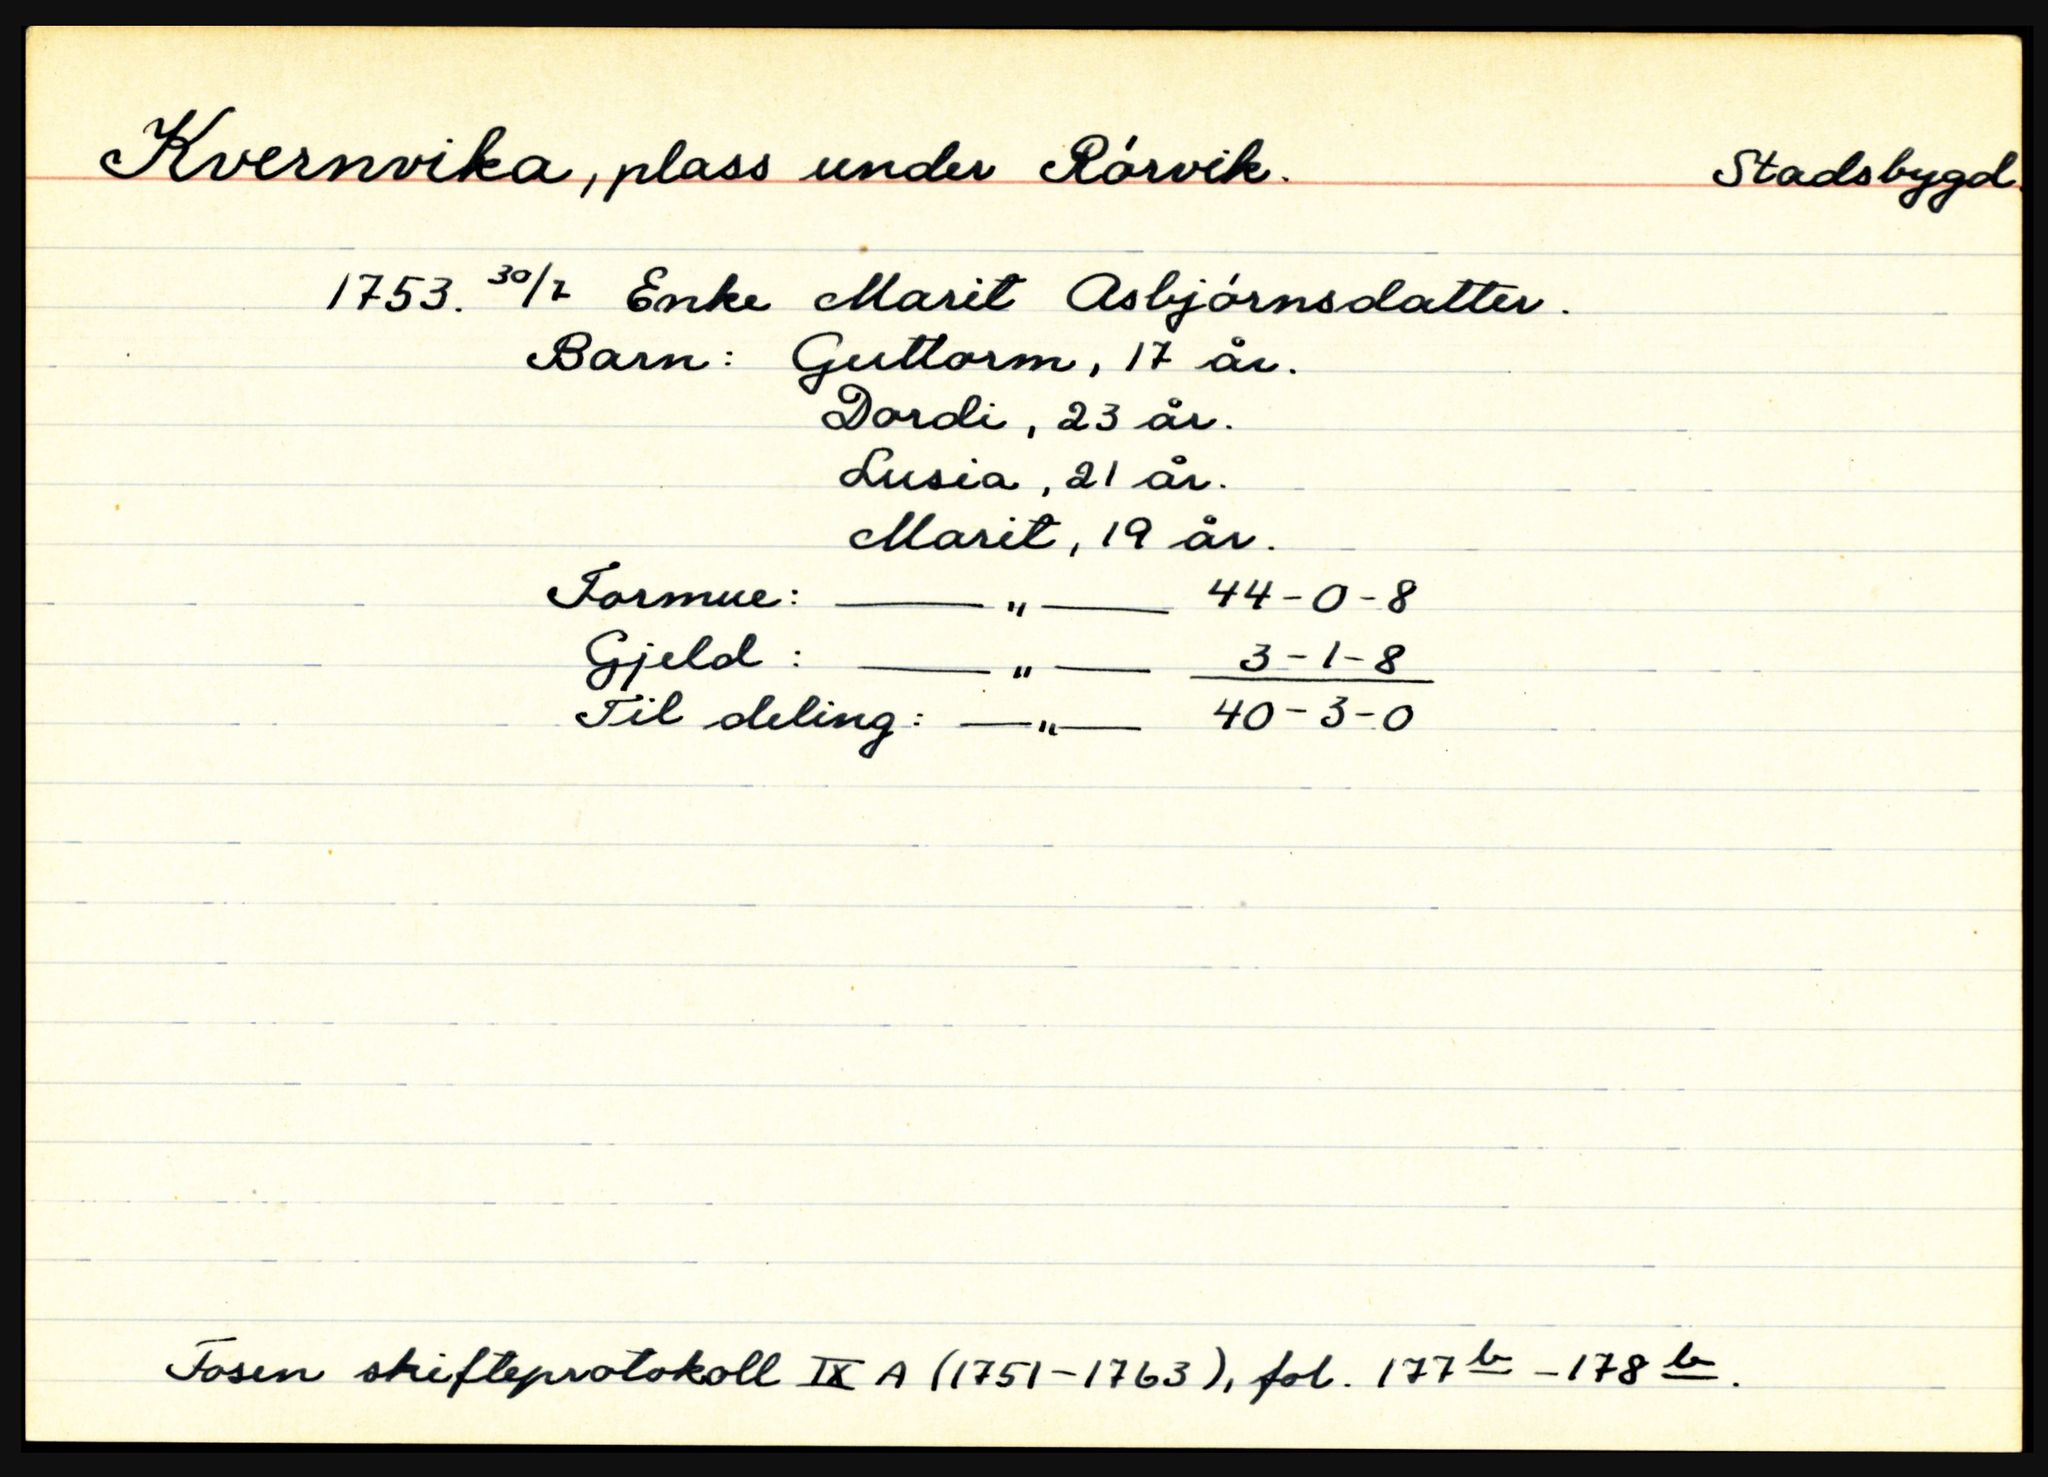 Kvernvika, plass under Rórvik. Stadsbygd.
1753. 30/7 Enke Marit Asbjórnsdatter.
Barn: Guttorm, 17 år.
Dordi, 23 år.
Lusia, 21 år.
Marit, 19 år.
Formue: —— „ —— 44-0-8
Gjeld: —— „ —— 3-1-8
Til deling: —„— 40-3-0
Fosen skifteprotokoll IX A (1751-1763), fol. 177b - 178b.